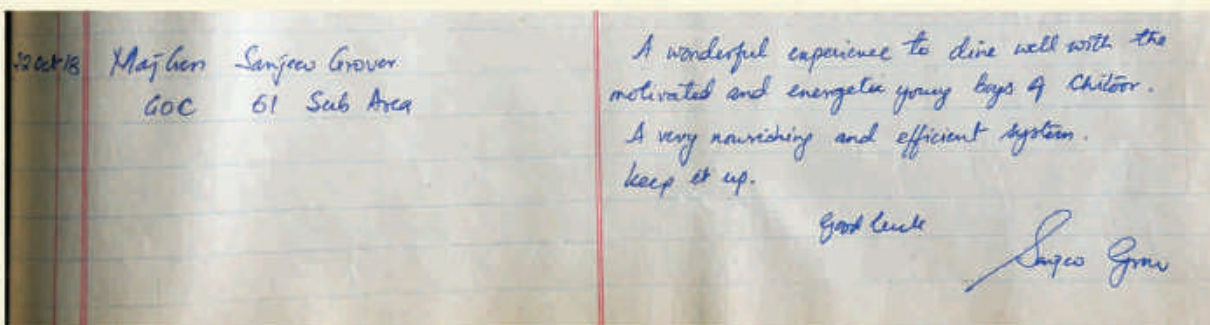 22 Oct 18 Maj Gen Sanjeev Grover
GOC 61 Sub Area
A wonderful experience to dine well with the
motivated and energetic young boys of Chitoor.
A very nourishing and efficient system.
keep it up.
Good luck
Sanjeev Grover